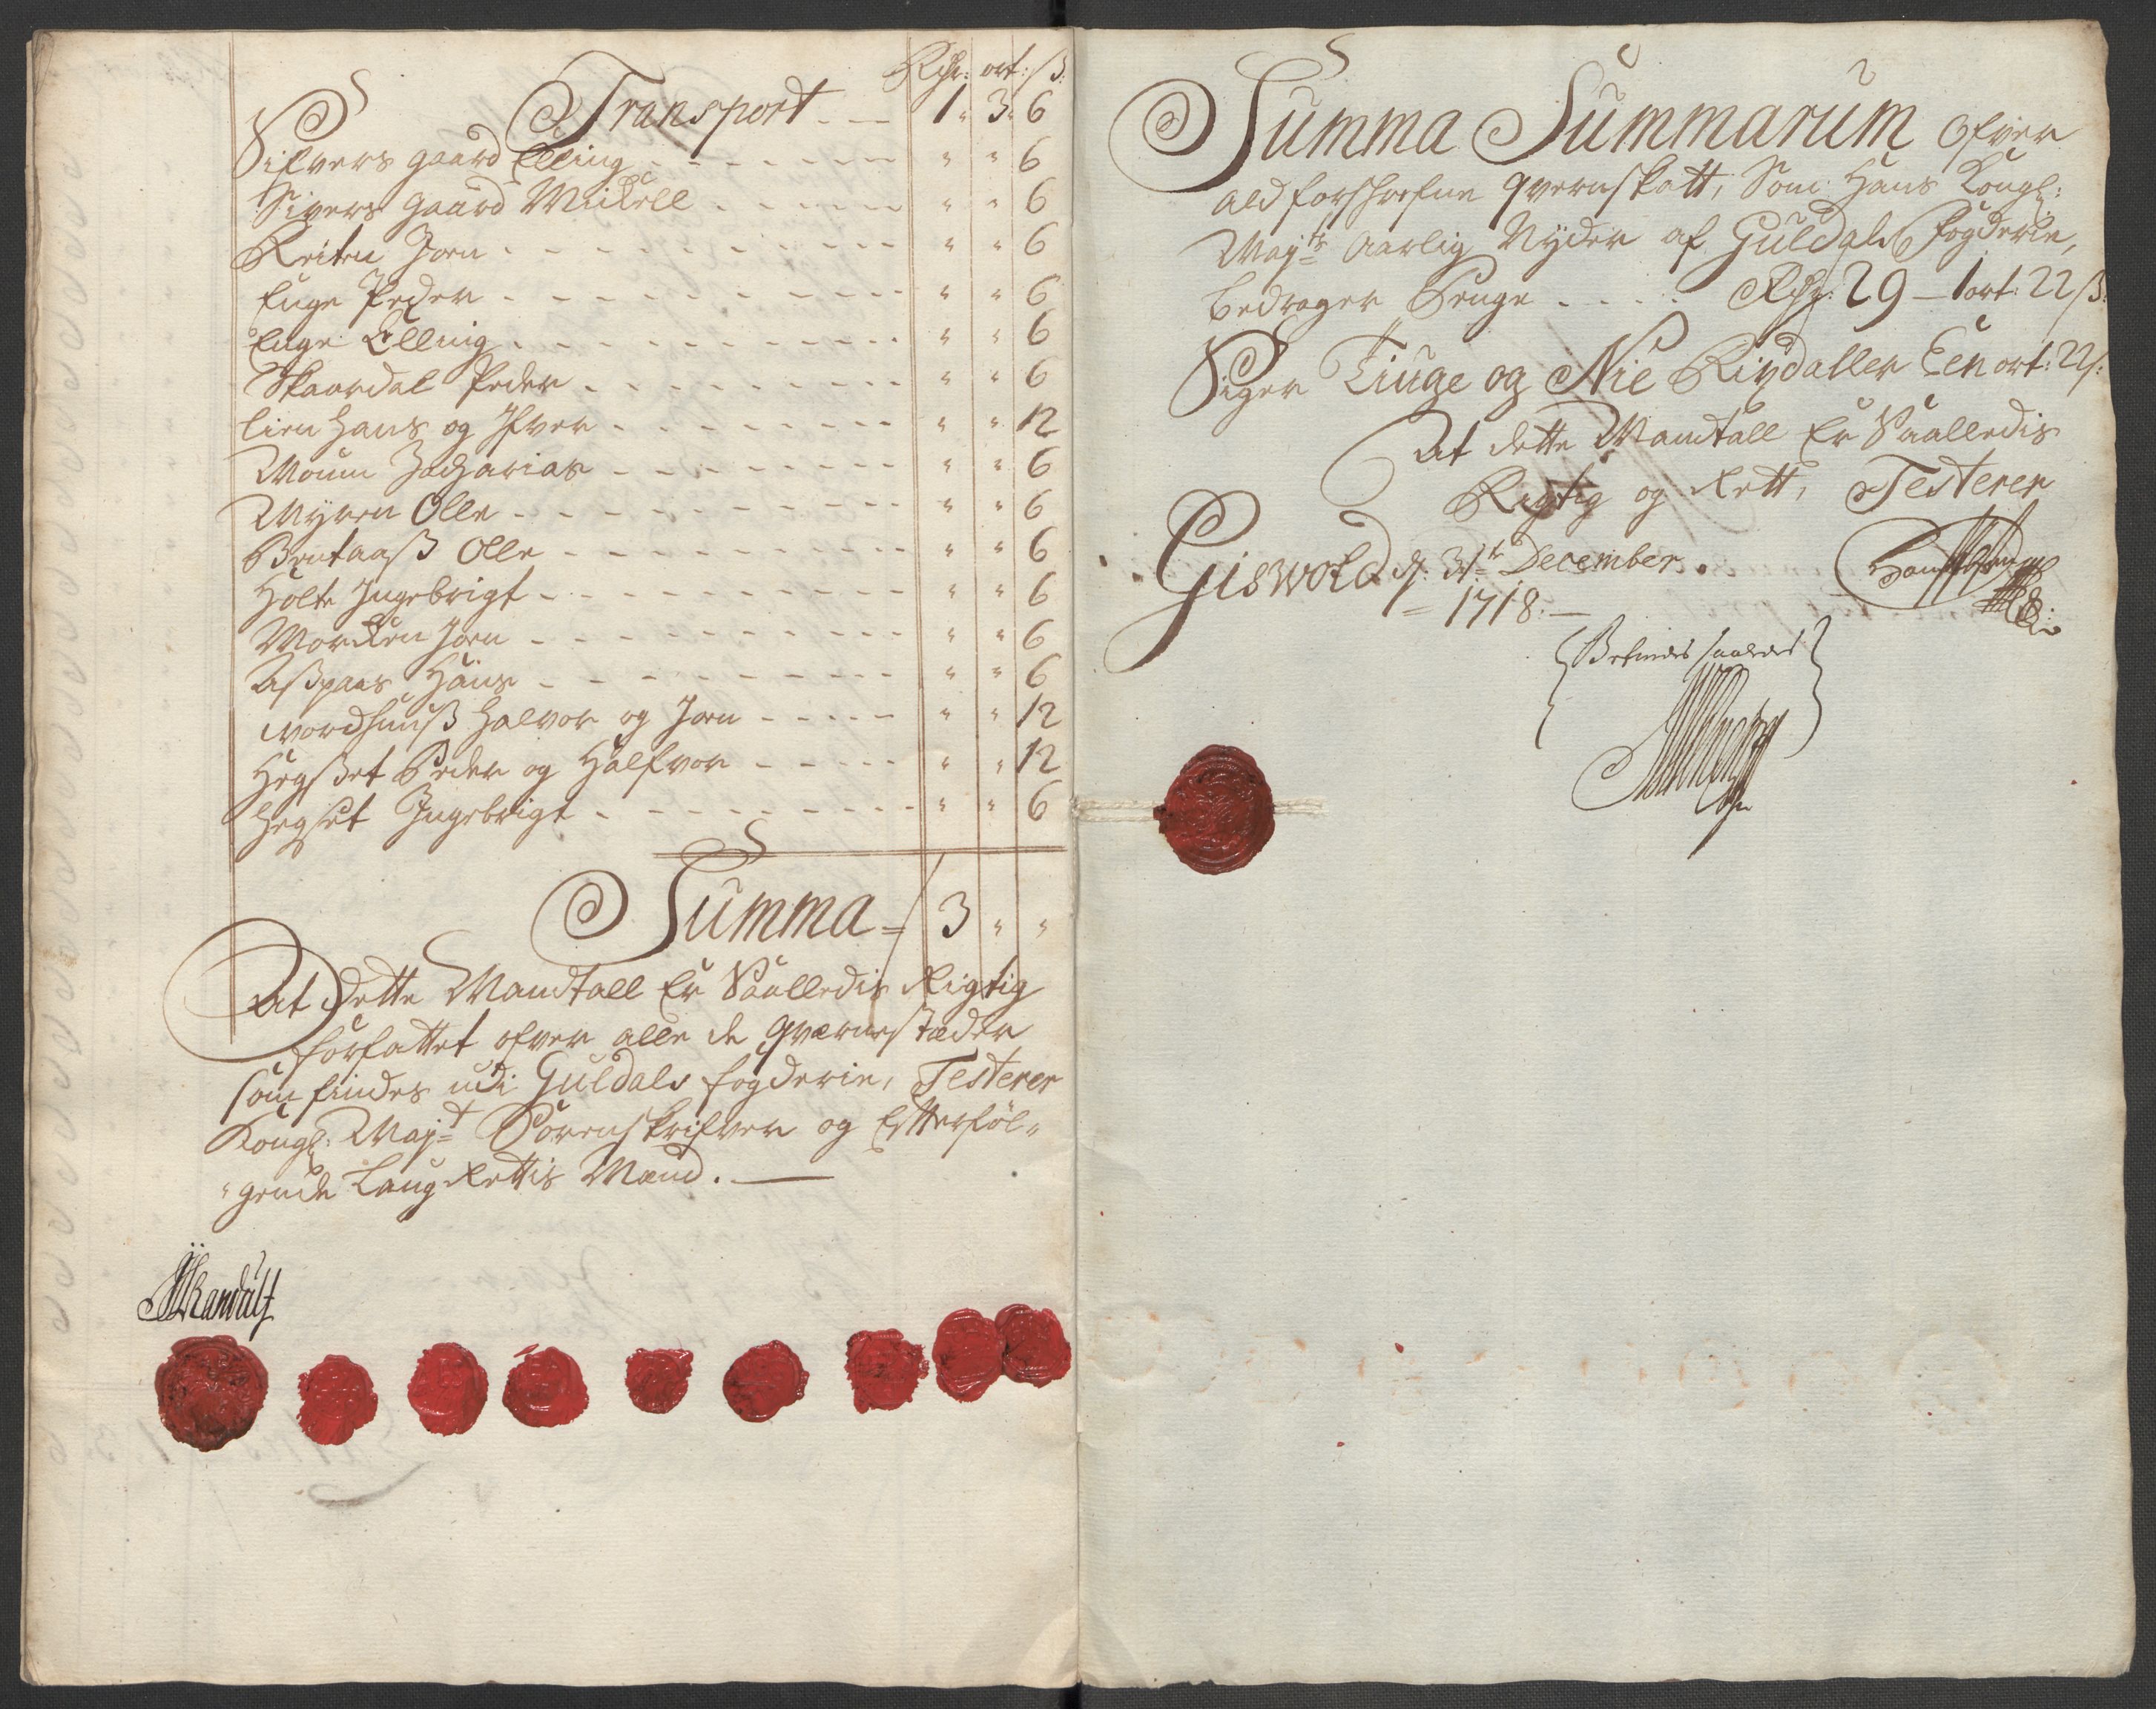 Rdr: ort: ß:
Transport - - 1 " 3 " 6
Sifvers gaard Elling - - - - - - " " 6
Sivers gaard Mickell - - - - - " " 6
Reiten Joen - - - - - - - - - - " " 6
Enge Peder - - - - - - - - - - " " 6
Enge Elling - - - - - - - - - - " " 6
Skaardal Peder - - - - - - - - " " 6
Lien Hans og Ifver - - - - - - - " " 12
Moum Zacharias - - - - - - - " " 6
Myren Olle - - - - - - - - - - " " 6
Bentaaß Olle - - - - - - - - " " 6
Holte Ingebrigt - - - - - - - - - " " 6
Morcken Joen - - - - - - - - - " " 6
Aßpaas Hans - - - - - - - - - " " 6
Nordhuuß Halvor og Joen - - - - - " " 12
Hegßet Peder og Halfvor - - - - - " " 12
Hegset Ingebrigt - - - - - - - - - " " 6
Summa = 3 " "
At dette Mandtall Er Saalledis Rigtig
forfattet ofver alle de Qværnestæder
som findes udi Guldals fogderie, Testerer
Kongl: Maj:t Sorenskrifver og Efterføl"
"gende Laug Rettis Mænd. —
Summa Summarum Ofver
ald forschrefne Qvernskatt, Som Hans Kongl:
Maj:ts Aarlig Nyder af Guldals Fogderie,
bedrager Penge - - - - Rdr: 29 - 1 ort: 22 ß:
Siger Tiuge og Nie Rixdaller Een ort: 22 ß:
At dette Mandtall Er Saalledis
Rigtig og Rett, Testerer
Giswold d: 31:te December.
= 1718: —
Befindes saaledes